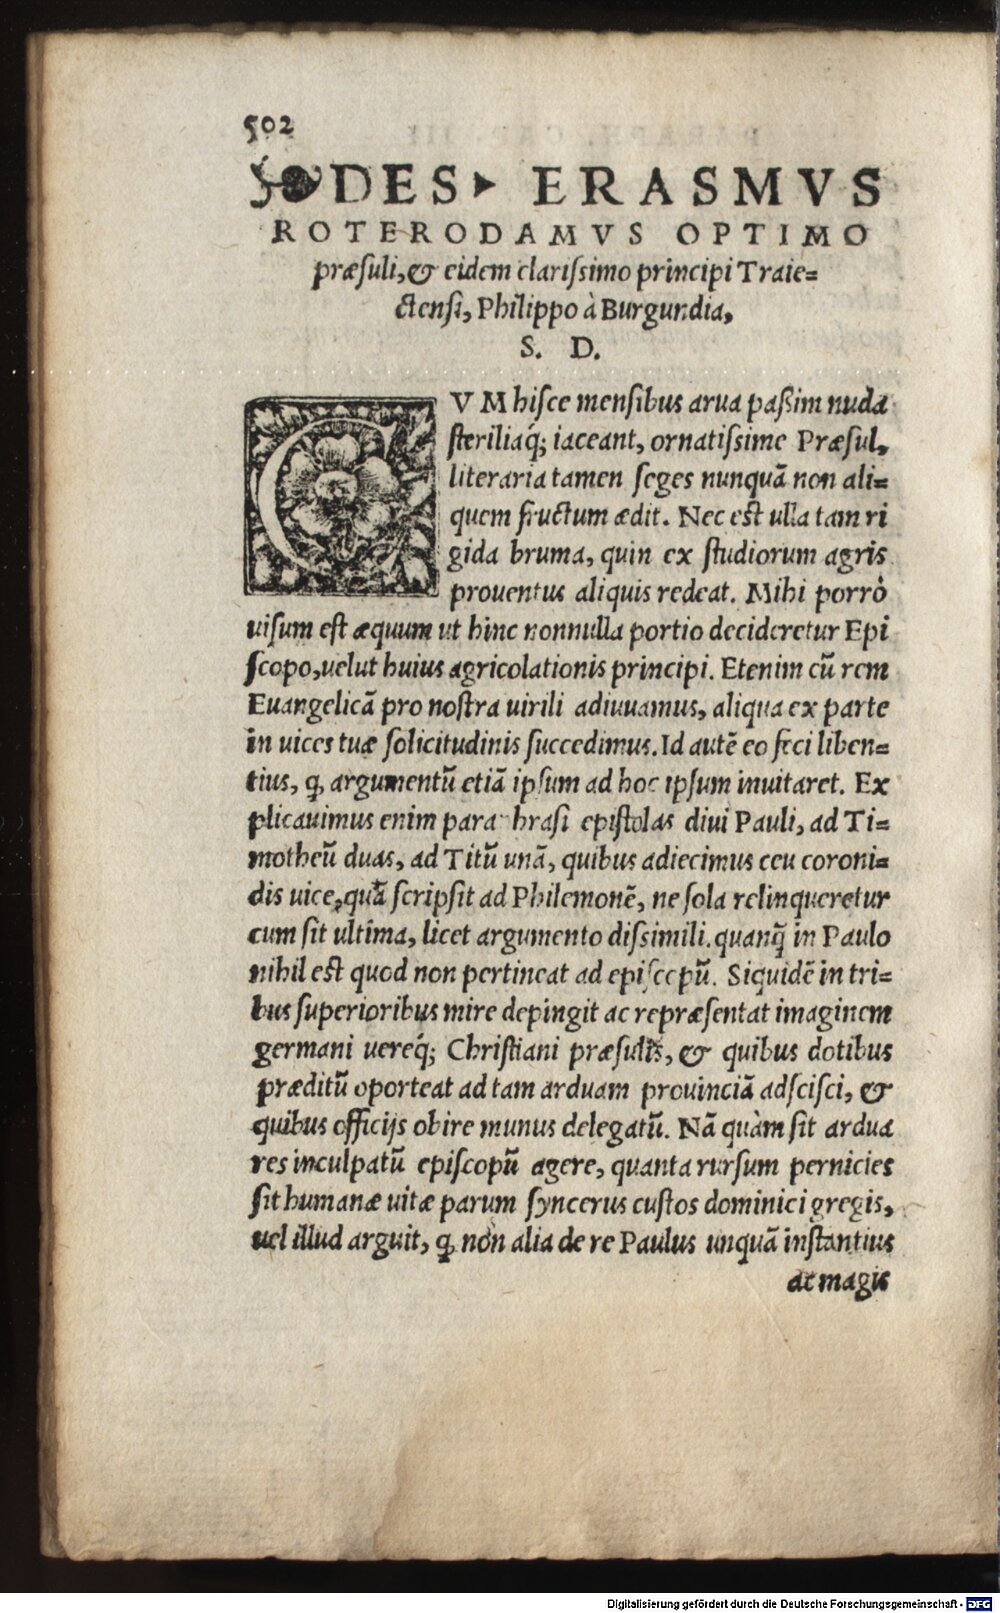 502
DES ERASMVS
ROTERODAMVS OPTIMO
præsuli, & eidem clarissimo principi Traie=
ctensi, Philippo à Burgundia,
S. D.
CVM hisce mensibus arua paßim nuda
steriliaq́; iaceant, ornatissime Præsul,
literaria tamen seges nunquã non ali=
quem fructum ædit. Nec est ulla tam ri
gida bruma, quin ex studiorum agris
prouentus aliquis redeat. Mihi porrò
uisum est æquum ut hinc nonnulla portio decideretur Epi
scopo, uelut huius agricolationis principi. Etenim cũ rem
Euangelicã pro nostra uirili adiuuamus, aliqua ex parte
in uices tuæ solicitudinis succedimus. Id autẽ eo feci liben=
tius, ꝙ argumentũ etiã ipsum ad hoc ipsum inuitaret. Ex
plicauimus enim paraphrasi epistolas diui Pauli, ad Ti=
motheũ duas, ad Titũ unã, quibus adiecimus ceu coroni=
dis uice, quã scripsit ad Philemonẽ, ne sola relinqueretur
cum sit ultima, licet argumento dissimili. quanq̃ in Paulo
nihil est quod non pertineat ad episcopũ. Siquidẽ in tri=
bus superioribus mire depingit ac repræsentat imaginem
germani uereq́; Christiani præsulis, & quibus dotibus
præditũ oporteat ad tam arduam prouinciã adscisci, &
quibus officijs obire munus delegatũ. Nã quàm sit ardua
res inculpatũ episcopũ agere, quanta rursum pernicies
sit humanæ uitæ parum syncerus custos dominici gregis,
uel illud arguit, ꝙ non alia de re Paulus unquã instantius
ac magis
Digitalisierung gefördert durch die Deutsche Forschungsgemeinschaft - DFG